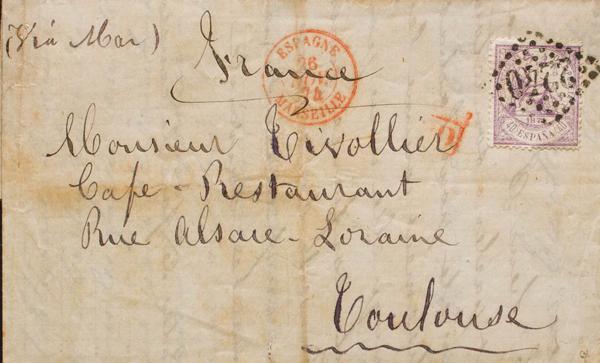 (Via Mar)
France
ESPAGNE
26
74
MARSEILLE
2240
ESPAÑA
PD
Monsieur Tivollier
Cafe - Restaurant
Rue Alsace - Loraine
Toulouse